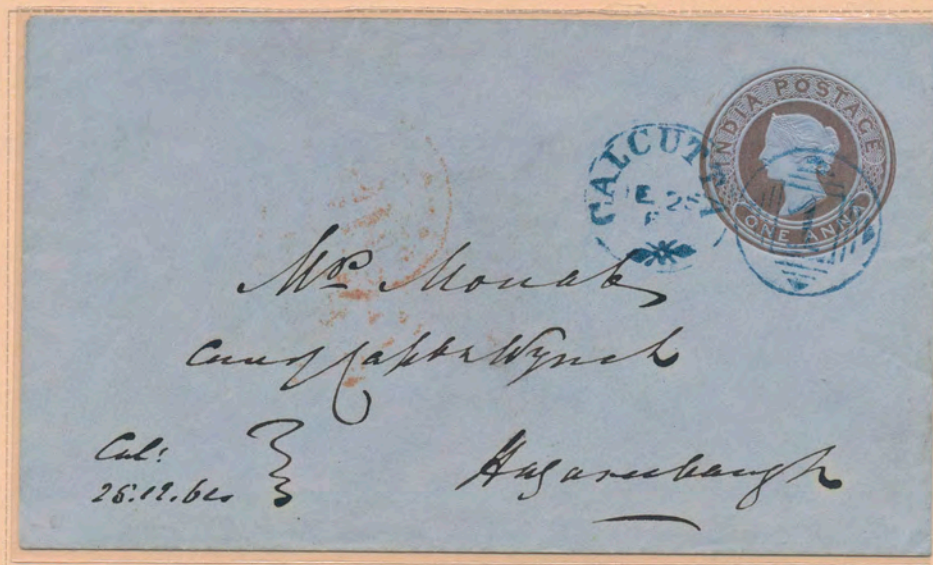 INDIA POSTAGE
ONE ANNA
CALCUTTA
25
1
Mrs Mouat
Care of Captn Wynch
Hazareebaugh
Cal: